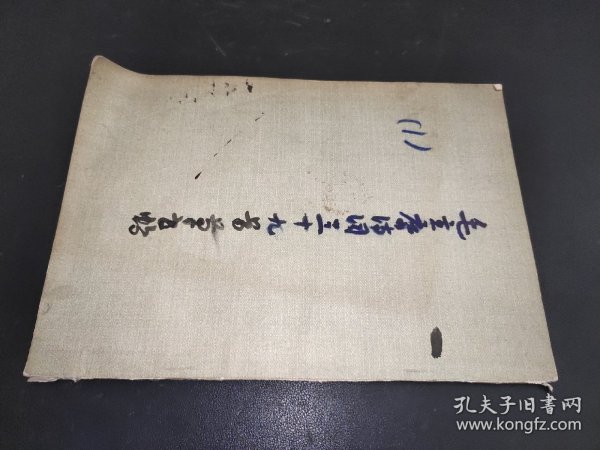 (1)
毛主席诗词三十九首草书帖
孔夫子旧書网
www.kongfz.com